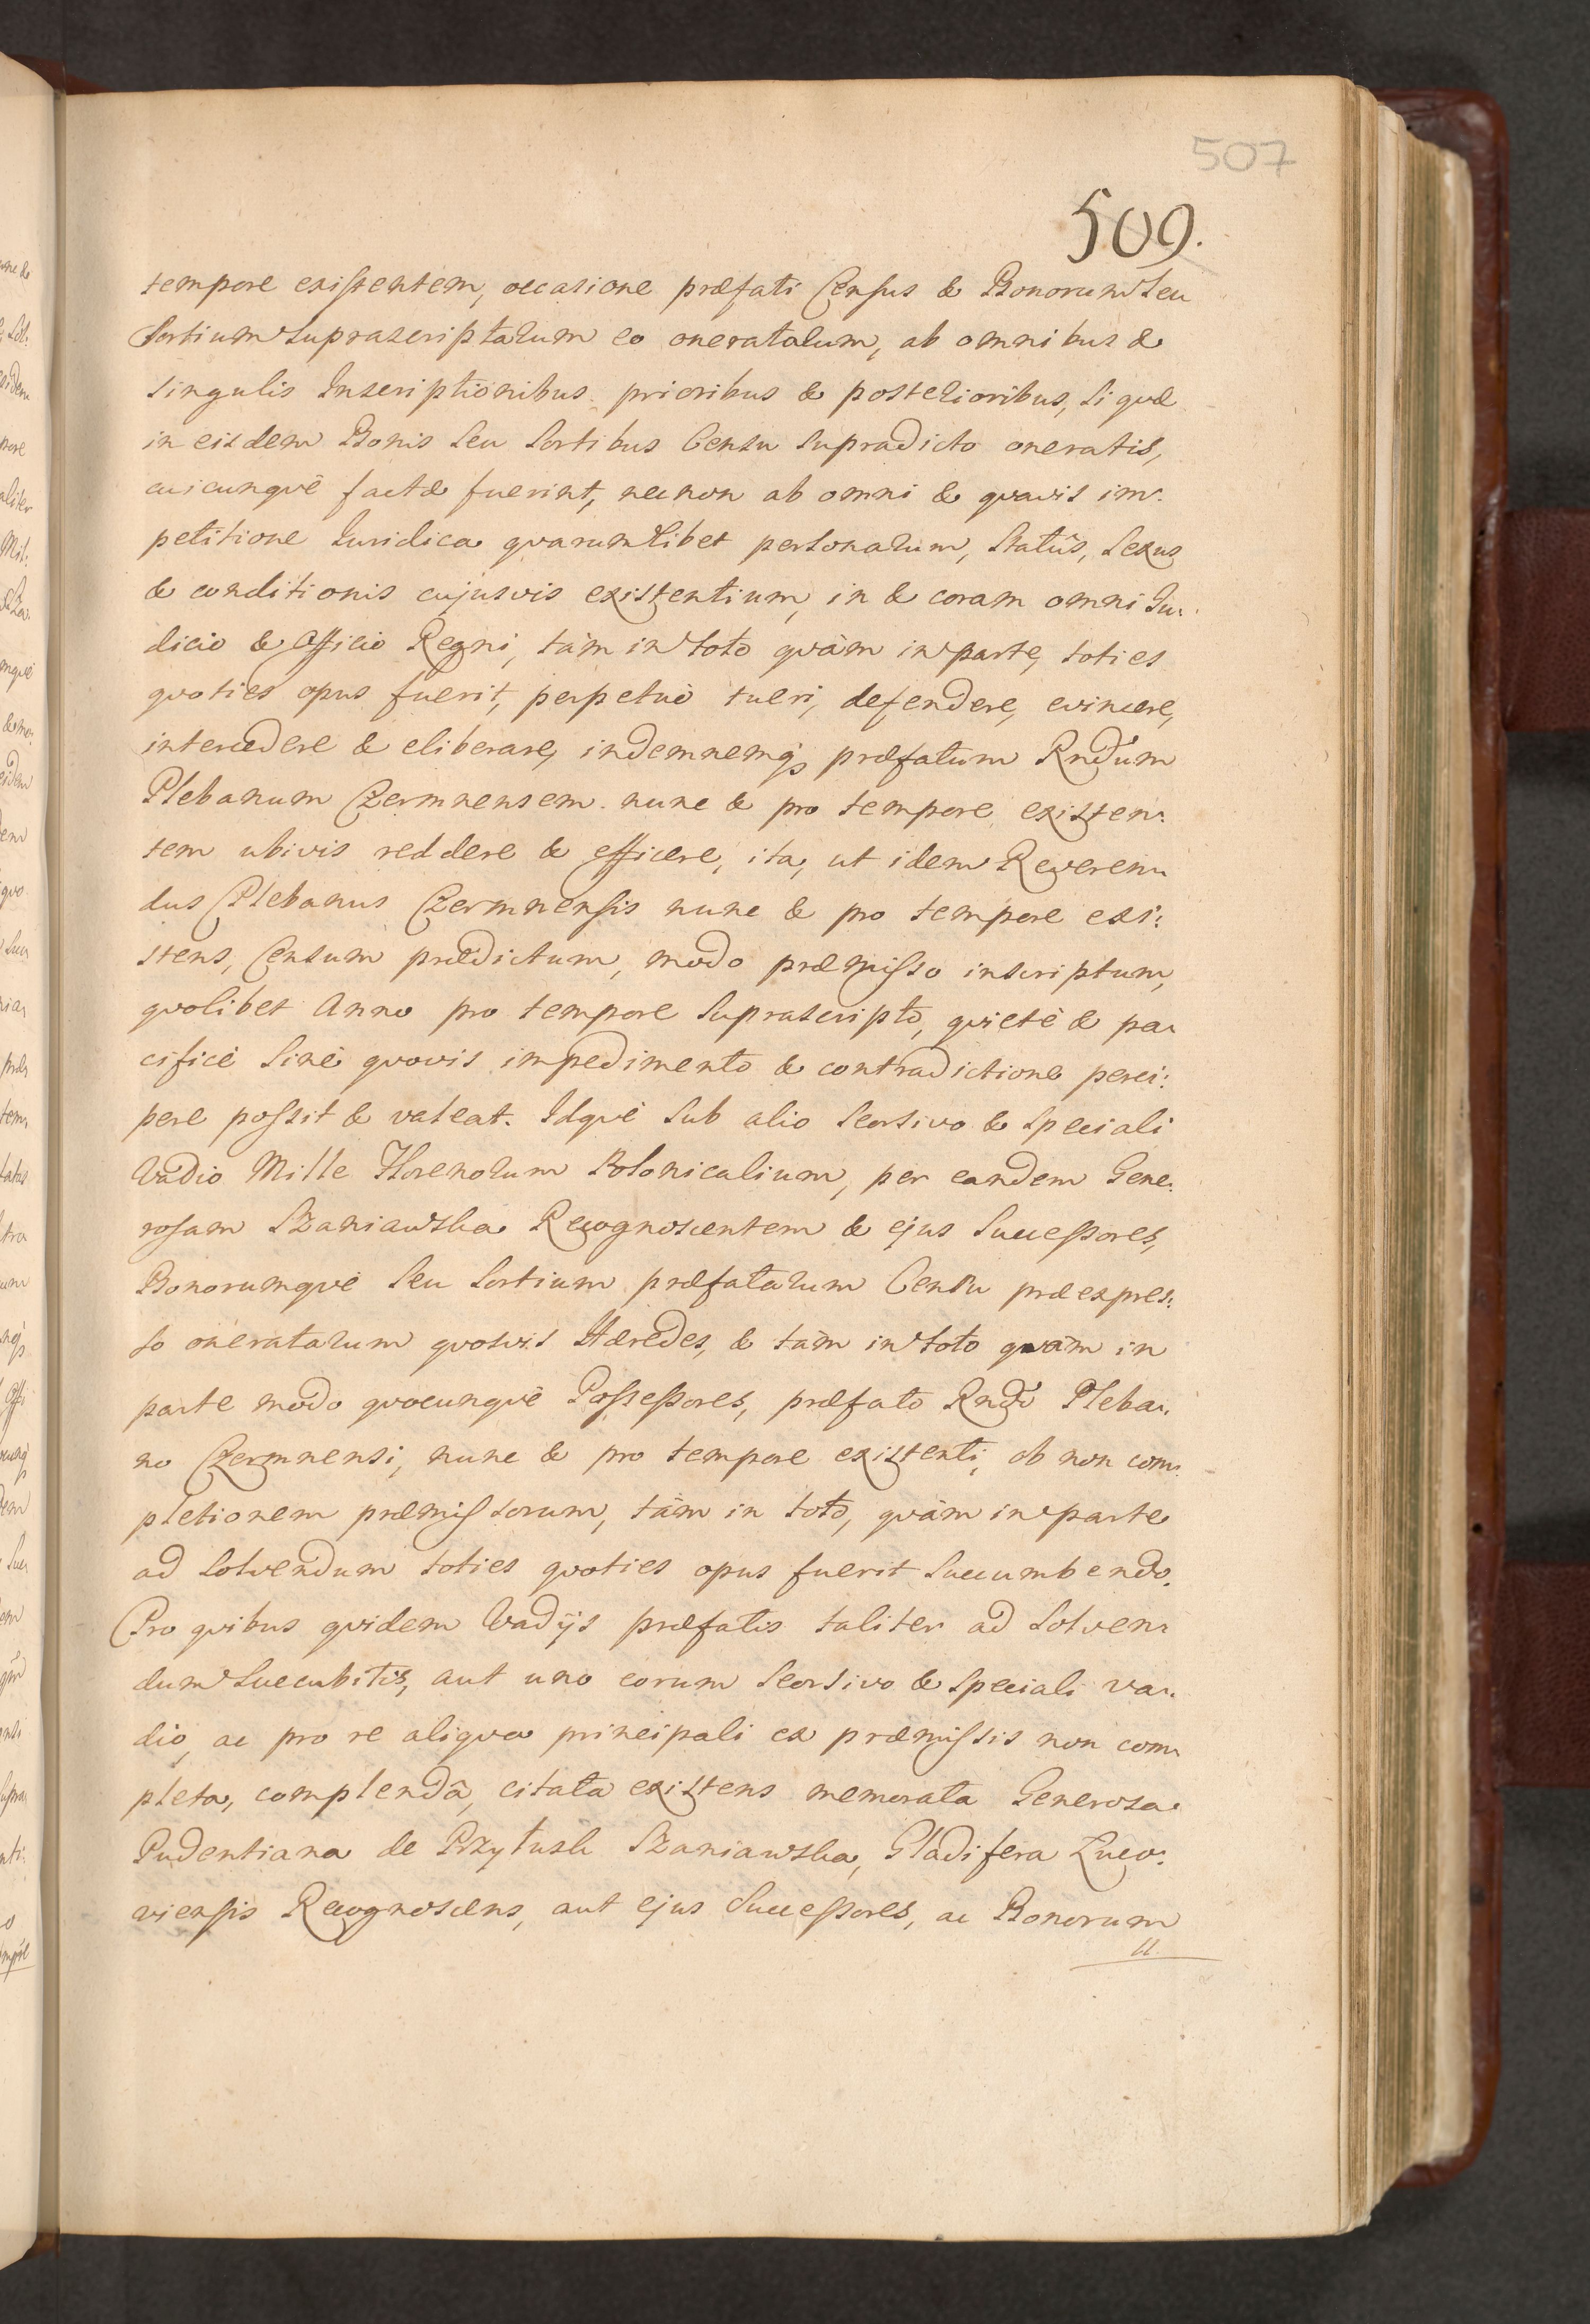 507
509.
tempore existentem, occasione præfati Census & Bonorum seu
Sortium suprascriptarum eo oneratarum, ab omnibus &
singulis Inscriptionibus prioribus & posterioribus, si quæ
in eisdem Bonis seu Sortibus Censu supradicto oneratis,
cuicunquè factæ fuerint, necnon ab omni & quavis im:
petitione Iuridica quarumlibet personarum, Statûs, Sexus
& conditionis cujusvis existentium, in & coram omni Ju:
dicio & Officio Regni, tàm in toto quàm in parte, toties
quoties opus fuerit, perpetuò tueri, defendere, evincere,
intercedere & eliberare, indemnemq3 præfatum Rndum
Plebanum Czermnensem nunc & pro tempore existen:
tem ubivis reddere & efficere, ita, ut idem Reveren:
dus Plebanus Czermnensis nunc & pro tempore exi:
stens, Censum prædictum, modo præmisso inscriptum,
quolibet Anno pro tempore suprascripto, quietè & pa:
cificè sinè quovis impedimento & contradictione perci:
pere possit & valeat. Idquè sub alio seorsivo & speciali
Vadio Mille Florenorum Polonicalium, per eandem Gene:
rosam Szaniawska Recognoscentem & ejus Successores,
Bonorumquè seu Sortium præfatarum Censu præexpres:
so oneratarum quosvis Hæredes, & tàm in toto quàm in
parte modo quocunquè Possessores, præfato Rndo Pleba:
no Czermnensi, nunc & pro tempore existenti, ob non com:
pletionem præmissorum, tàm in toto, quàm in parte
ad solvendum toties quoties opus fuerit succumbendo.
Pro quibus quidem Vadijs præfatis taliter ad solven:
dum succubitis, aut uno eorum seorsivo & speciali va:
dio, ac pro re aliqua principali ex præmissis non com:
pleta, complendâ, citata existens memorata Generosa
Pudentiana de Przyłusk Szaniawska, Gladifera Łuco:
viensis Recognoscens, aut ejus Successores, ac Bonorum